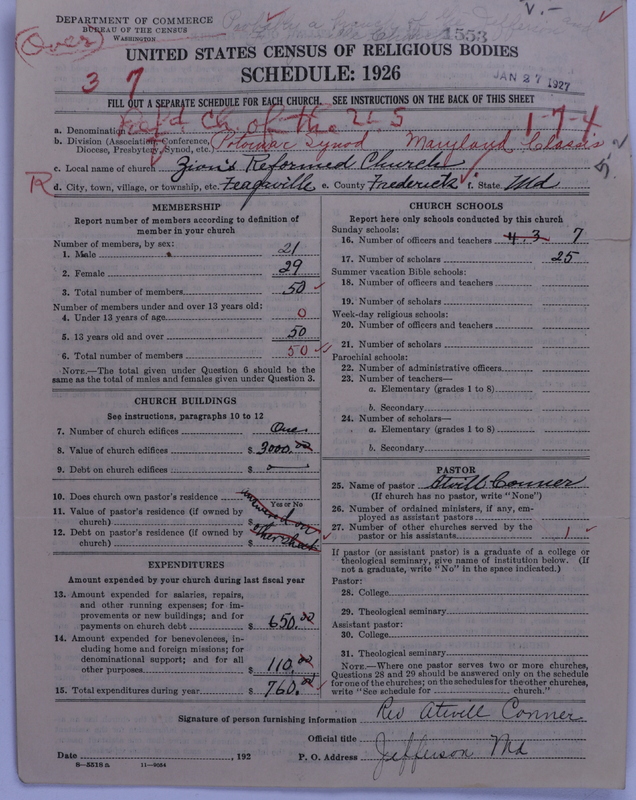 DEPARTMENT OF COMMERCE
BUREAU OF THE CENSUS
WASHINGTON
(Over)
1553
UNITED STATES CENSUS OF RELIGIOUS BODIES
SCHEDULE: 1926
JAN 27 1927
3 7
FILL OUT A SEPARATE SCHEDULE FOR EACH CHURCH. SEE INSTRUCTIONS ON THE BACK OF THIS SHEET
a. Denomination Ref'd Ch of the U S 1-7-4
b. Division (Association, Conference, Diocese, Presbytery, Synod, etc.) Potomac Synod Maryland Classis
c. Local name of church Zion's Reformed Church
R d. City, town, village, or township, etc. Feagaville e. County Frederick f. State Md
MEMBERSHIP
Report number of members according to definition of
member in your church
Number of members, by sex:
1. Male 21
2. Female 29
3. Total number of members 50
Number of members under and over 13 years old:
4. Under 13 years of age 0
5. 13 years old and over 50
6. Total number of members 50
NOTE.—The total given under Question 6 should be
same as the total of males and females given under Question 3.
CHURCH BUILDINGS
See instructions, paragraphs 10 to 12
7. Number of church edifices One
8. Value of church edifices $ 3000.00
9. Debt on church edifices $
10. Does church own pastor's residence answered on
Yes or No
11. Value of pastor's residence (if owned by
church) $
12. Debt on pastor's residence (if owned by
church) $ other sheet
EXPENDITURES
Amount expended by your church during last fiscal year
13. Amount expended for salaries, repairs,
and other running expenses; for im-
provements or new buildings; and for
payments on church debt $ 650.00
14. Amount expended for benevolences, in-
cluding home and foreign missions; for
denominational support; and for all
other purposes $ 110.00
15. Total expenditures during year $ 760.00
CHURCH SCHOOLS
Report here only schools conducted by this church
Sunday schools:
16. Number of officers and teachers 4.3 7
17. Number of scholars 25
Summer vacation Bible schools:
18. Number of officers and teachers
19. Number of scholars
Week-day religious schools:
20. Number of officers and teachers
21. Number of scholars
Parochial schools:
22. Number of administrative officers
23. Number of teachers—
a. Elementary (grades 1 to 8)
b. Secondary
24. Number of scholars—
a. Elementary (grades 1 to 8)
b. Secondary
PASTOR
25. Name of pastor Atvill Conner
(If church has no pastor, write "None")
26. Number of ordained ministers, if any, em-
ployed as assistant pastors
27. Number of other churches served by the
pastor or his assistants 1
If pastor (or assistant pastor) is a graduate of a college or
theological seminary, give name of institution below. (If
not a graduate, write "No" in the space indicated.)
Pastor:
28. College
29. Theological seminary
Assistant pastor:
30. College
31. Theological seminary
NOTE.—Where one pastor serves two or more churches,
Questions 28 and 29 should be answered only on the schedule
for one of the churches; on the schedules for the other churches,
write "See schedule for church."
Signature of person furnishing information Rev Atvell Conner
Official title
Date , 192 P. O. Address Jefferson Md
8—5518 a 11—9034